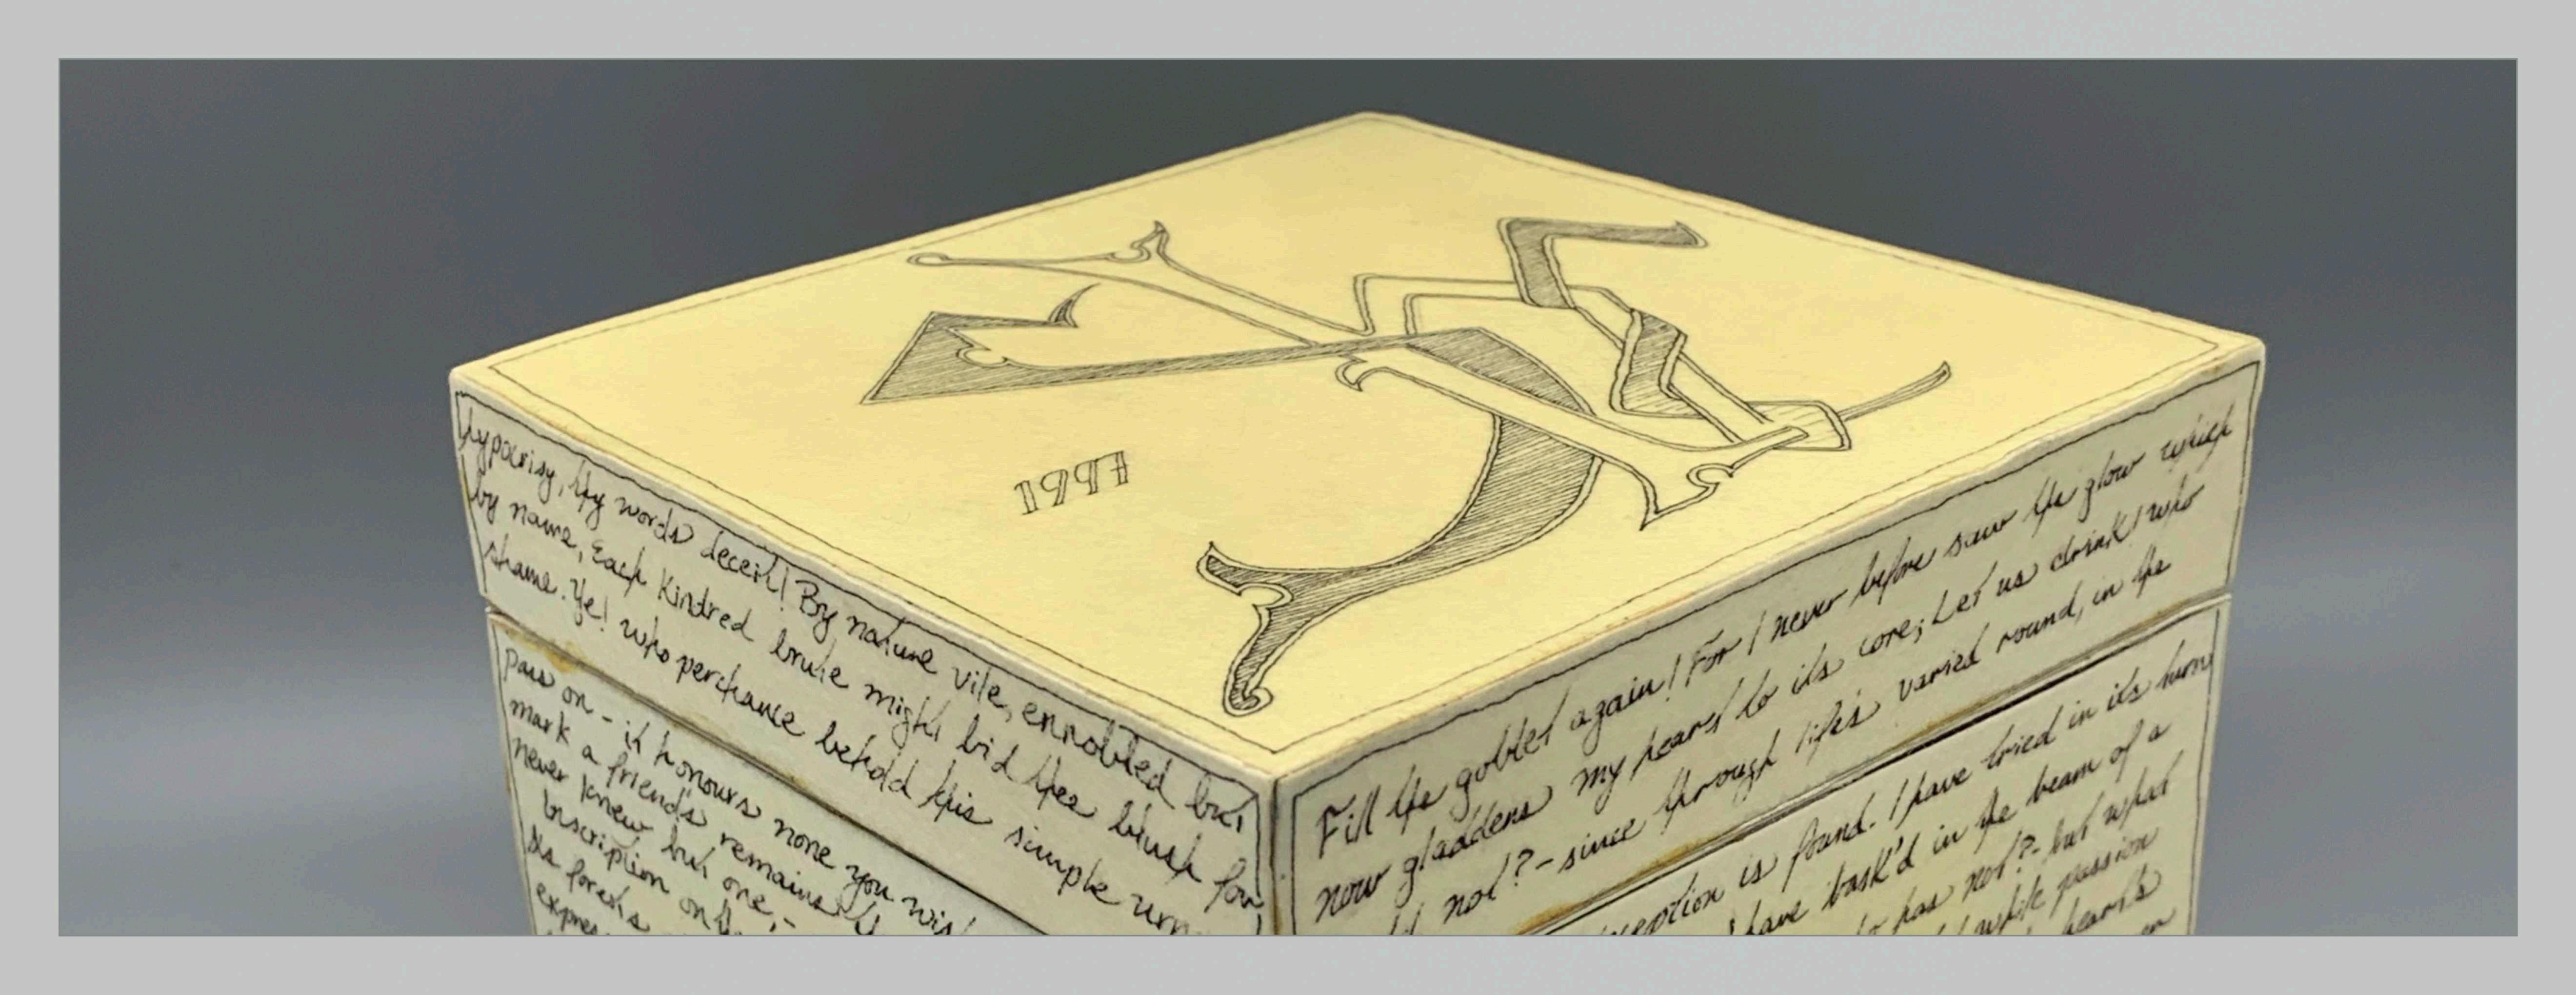 1997
hypocrisy, thy words deceit! By nature vile, ennobled but
by name, Each kindred brute might bid thee blush for
shame. Ye! who perchance behold this simple urn
Pass on - it honours none you wish
mark a friend's remains
never knew but one, -
Inscription on
Fill the goblet again! For I never before saw the glow which
now gladdens my heart to its core; Let us drink! who
not? - since through life's varied round, in the
is found. I have tried in its turn
have bask'd in the beam of a
has not? - but what
while passion